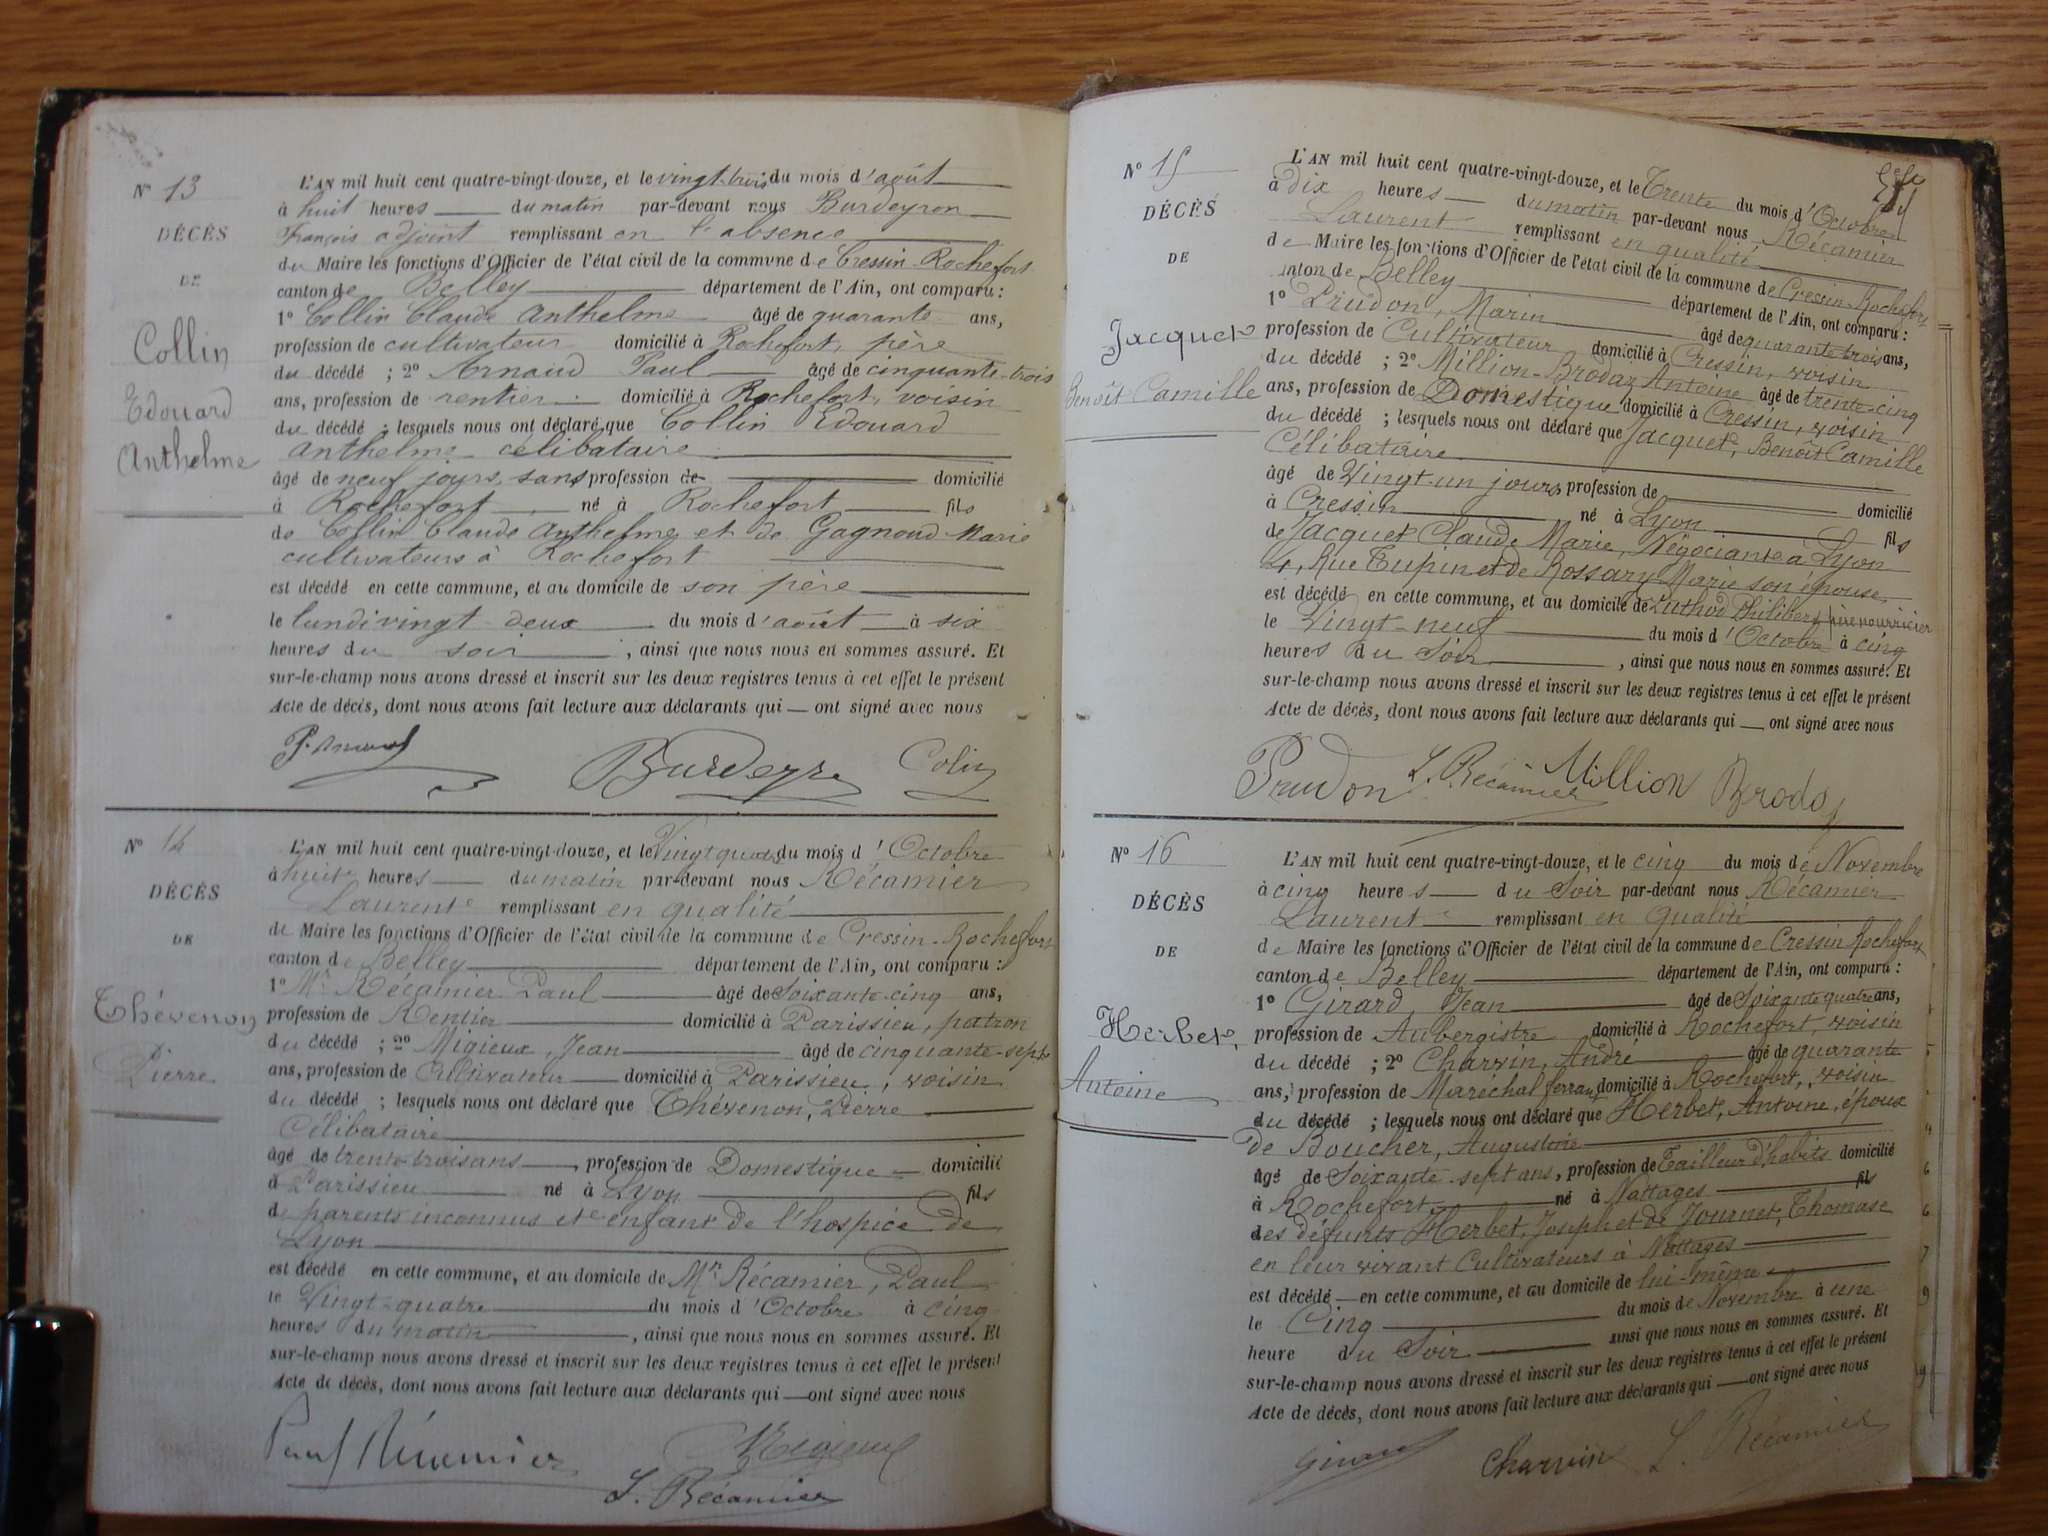 N° 13
DÉCÈS
DE
Collin
Edouard
Anthelme
L'AN mil huit cent quatre-vingt-douze, et le vingt-trois du mois d'août
à huit heures du matin par-devant nous Burdeyron
François adjoint remplissant en l'absence
du Maire les fonctions d'Officier de l'état civil de la commune de Cressin-Rochefort
canton de Belley département de l'Ain, ont comparu :
1° Collin Claude Anthelme âgé de quarante ans,
profession de cultivateur domicilié à Rochefort, père
du décédé ; 2° Arnaud Paul âgé de cinquante-trois
ans, profession de rentier domicilié à Rochefort, voisin
du décédé ; lesquels nous ont déclaré que Collin Edouard
Anthelme célibataire
âgé de neuf jours, sans profession de domicilié
à Rochefort né à Rochefort fils
de Collin Claude Anthelme et de Gagnoud Marie
cultivateurs à Rochefort
est décédé en cette commune, et au domicile de son père
le lundi vingt deux du mois d'août à six
heures du soir, ainsi que nous nous en sommes assuré. Et
sur-le-champ nous avons dressé et inscrit sur les deux registres tenus à cet effet le présent
Acte de décès, dont nous avons fait lecture aux déclarants qui — ont signé avec nous
P. Arnaud Burdeyron Colin
N° 14
DÉCÈS
DE
Thévenon
Pierre
L'AN mil huit cent quatre-vingt-douze, et le Vingt quatre du mois d'Octobre
à huit heures du matin par-devant nous Récamier
Laurent remplissant en qualité
de Maire les fonctions d'Officier de l'état civil de la commune de Cressin-Rochefort
canton de Belley département de l'Ain, ont comparu :
1° Mr Récamier Paul âgé de Soixante-cinq ans,
profession de Rentier domicilié à Parissieu, patron
du décédé ; 2° Migieux, Jean âgé de cinquante-sept
ans, profession de Cultivateur domicilié à Parissieu, voisin
du décédé ; lesquels nous ont déclaré que Thévenon, Pierre
Célibataire
âgé de trente-trois ans, profession de Domestique domicilié
à Parissieu né à Lyon fils
de parents inconnus et enfant de l'hospice de
Lyon
est décédé en cette commune, et au domicile de Mr Récamier, Paul
le Vingt-quatre du mois d'Octobre à cinq
heures du matin, ainsi que nous nous en sommes assuré. Et
sur-le-champ nous avons dressé et inscrit sur les deux registres tenus à cet effet le présent
Acte de décès, dont nous avons fait lecture aux déclarants qui — ont signé avec nous
Paul Récamier Migieux
L. Récamier
N° 15
DÉCÈS
DE
Jacquet
Benoît Camille
L'AN mil huit cent quatre-vingt-douze, et le Trente du mois d'Octobre
à dix heures du matin par-devant nous Récamier
Laurent remplissant en qualité
de Maire les fonctions d'Officier de l'état civil de la commune de Cressin-Rochefort
canton de Belley département de l'Ain, ont comparu :
1° Prudon, Marin âgé de quarante-trois ans,
profession de Cultivateur domicilié à Cressin, voisin
du décédé ; 2° Million-Brodaz Antoine âgé de trente-cinq
ans, profession de Domestique domicilié à Cressin, voisin
du décédé ; lesquels nous ont déclaré que Jacquet, Benoît Camille
Célibataire
âgé de Vingt-un jours, profession de domicilié
à Cressin né à Lyon fils
de Jacquet Claude Marie, Négociant à Lyon
4, Rue Tupin et de Rossary Marie son épouse
est décédé en cette commune, et au domicile de Luthod Philibert, père nourricier
le Vingt-neuf du mois d'Octobre à cinq
heures du Soir, ainsi que nous nous en sommes assuré. Et
sur-le-champ nous avons dressé et inscrit sur les deux registres tenus à cet effet le présent
Acte de décès, dont nous avons fait lecture aux déclarants qui — ont signé avec nous
Prudon L. Récamier Million Brodaz
N° 16
DÉCÈS
DE
Herbet,
Antoine
L'AN mil huit cent quatre-vingt-douze, et le cinq du mois de Novembre
à cinq heures du Soir par-devant nous Récamier
Laurent remplissant en qualité
de Maire les fonctions d'Officier de l'état civil de la commune de Cressin Rochefort
canton de Belley département de l'Ain, ont comparu :
1° Girard, Jean âgé de Soixante quatre ans,
profession de Aubergiste domicilié à Rochefort, voisin
du décédé ; 2° Charvin, André âgé de quarante
ans, profession de Maréchal ferrant domicilié à Rochefort, voisin
du décédé ; lesquels nous ont déclaré que Herbet, Antoine, époux
de Boucher, Augustine
âgé de Soixante-sept ans, profession de Tailleur d'habits domicilié
à Rochefort né à Nattages fils
des défunts Herbet, Joseph et de Journet, Thomase
en leur vivant Cultivateurs à Nattages
est décédé en cette commune, et au domicile de lui-même
le Cinq du mois de Novembre à une
heure du Soir ainsi que nous nous en sommes assuré. Et
sur-le-champ nous avons dressé et inscrit sur les deux registres tenus à cet effet le présent
Acte de décès, dont nous avons fait lecture aux déclarants qui — ont signé avec nous
Girard Charvin L. Récamier